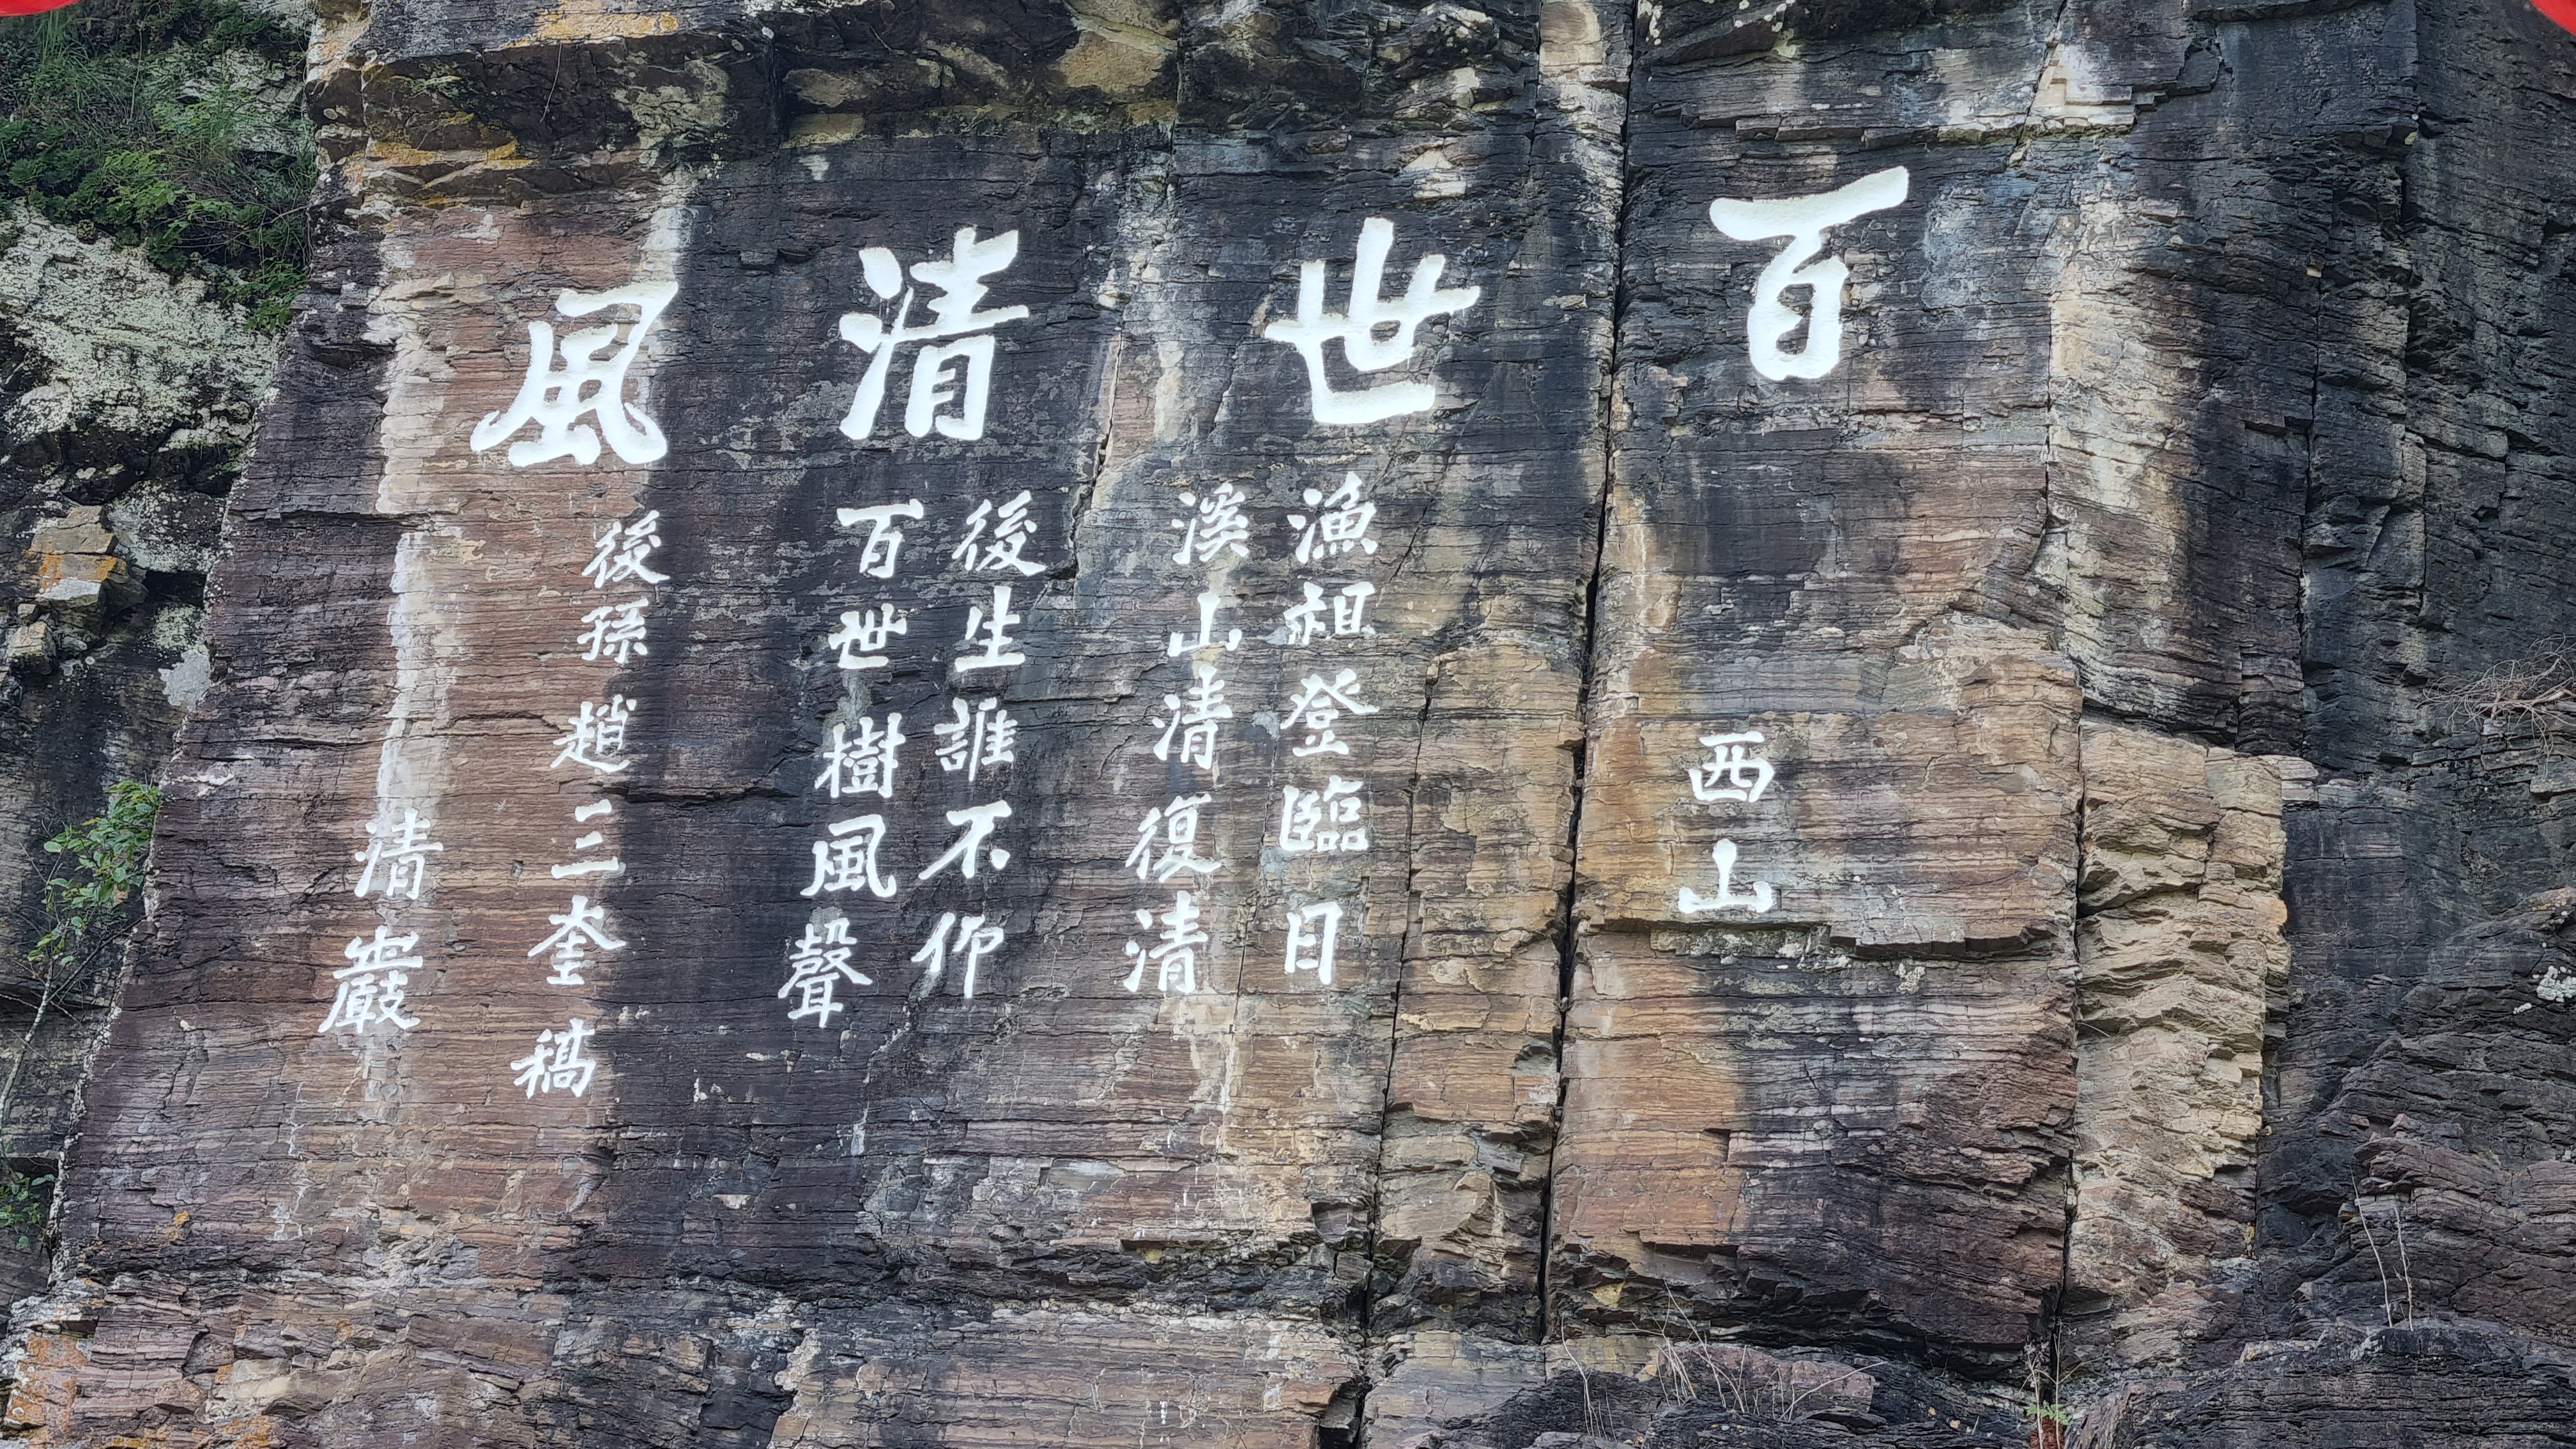 百世清風
西山
漁祖登臨日
溪山清復清
後生誰不仰
百世樹風聲
後孫趙三奎稿
清巖